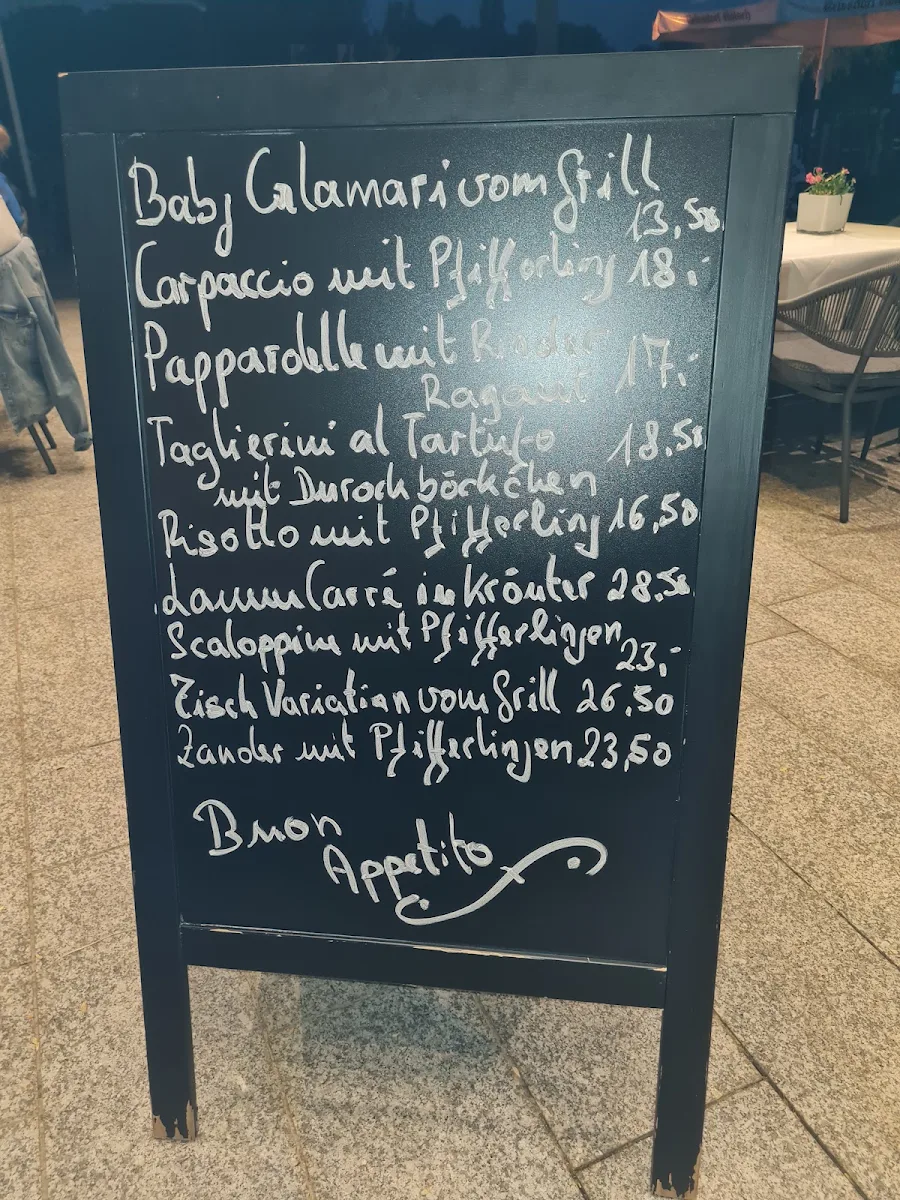 Baby Calamari vom Grill
13,50
Carpaccio mit Pfifferling 18.-
Pappardelle mit Rinder
Ragout 17.-
Taglierini al Tartufo 18,50
mit Durochböckchen
Risotto mit Pfifferling 16,50
Lamm Carré in Kräuter 28,50
Scaloppine mit Pfifferlingen
23,-
Fisch Variation vom Grill 26,50
Zander mit Pfifferlingen 23,50
Buon
Appetito